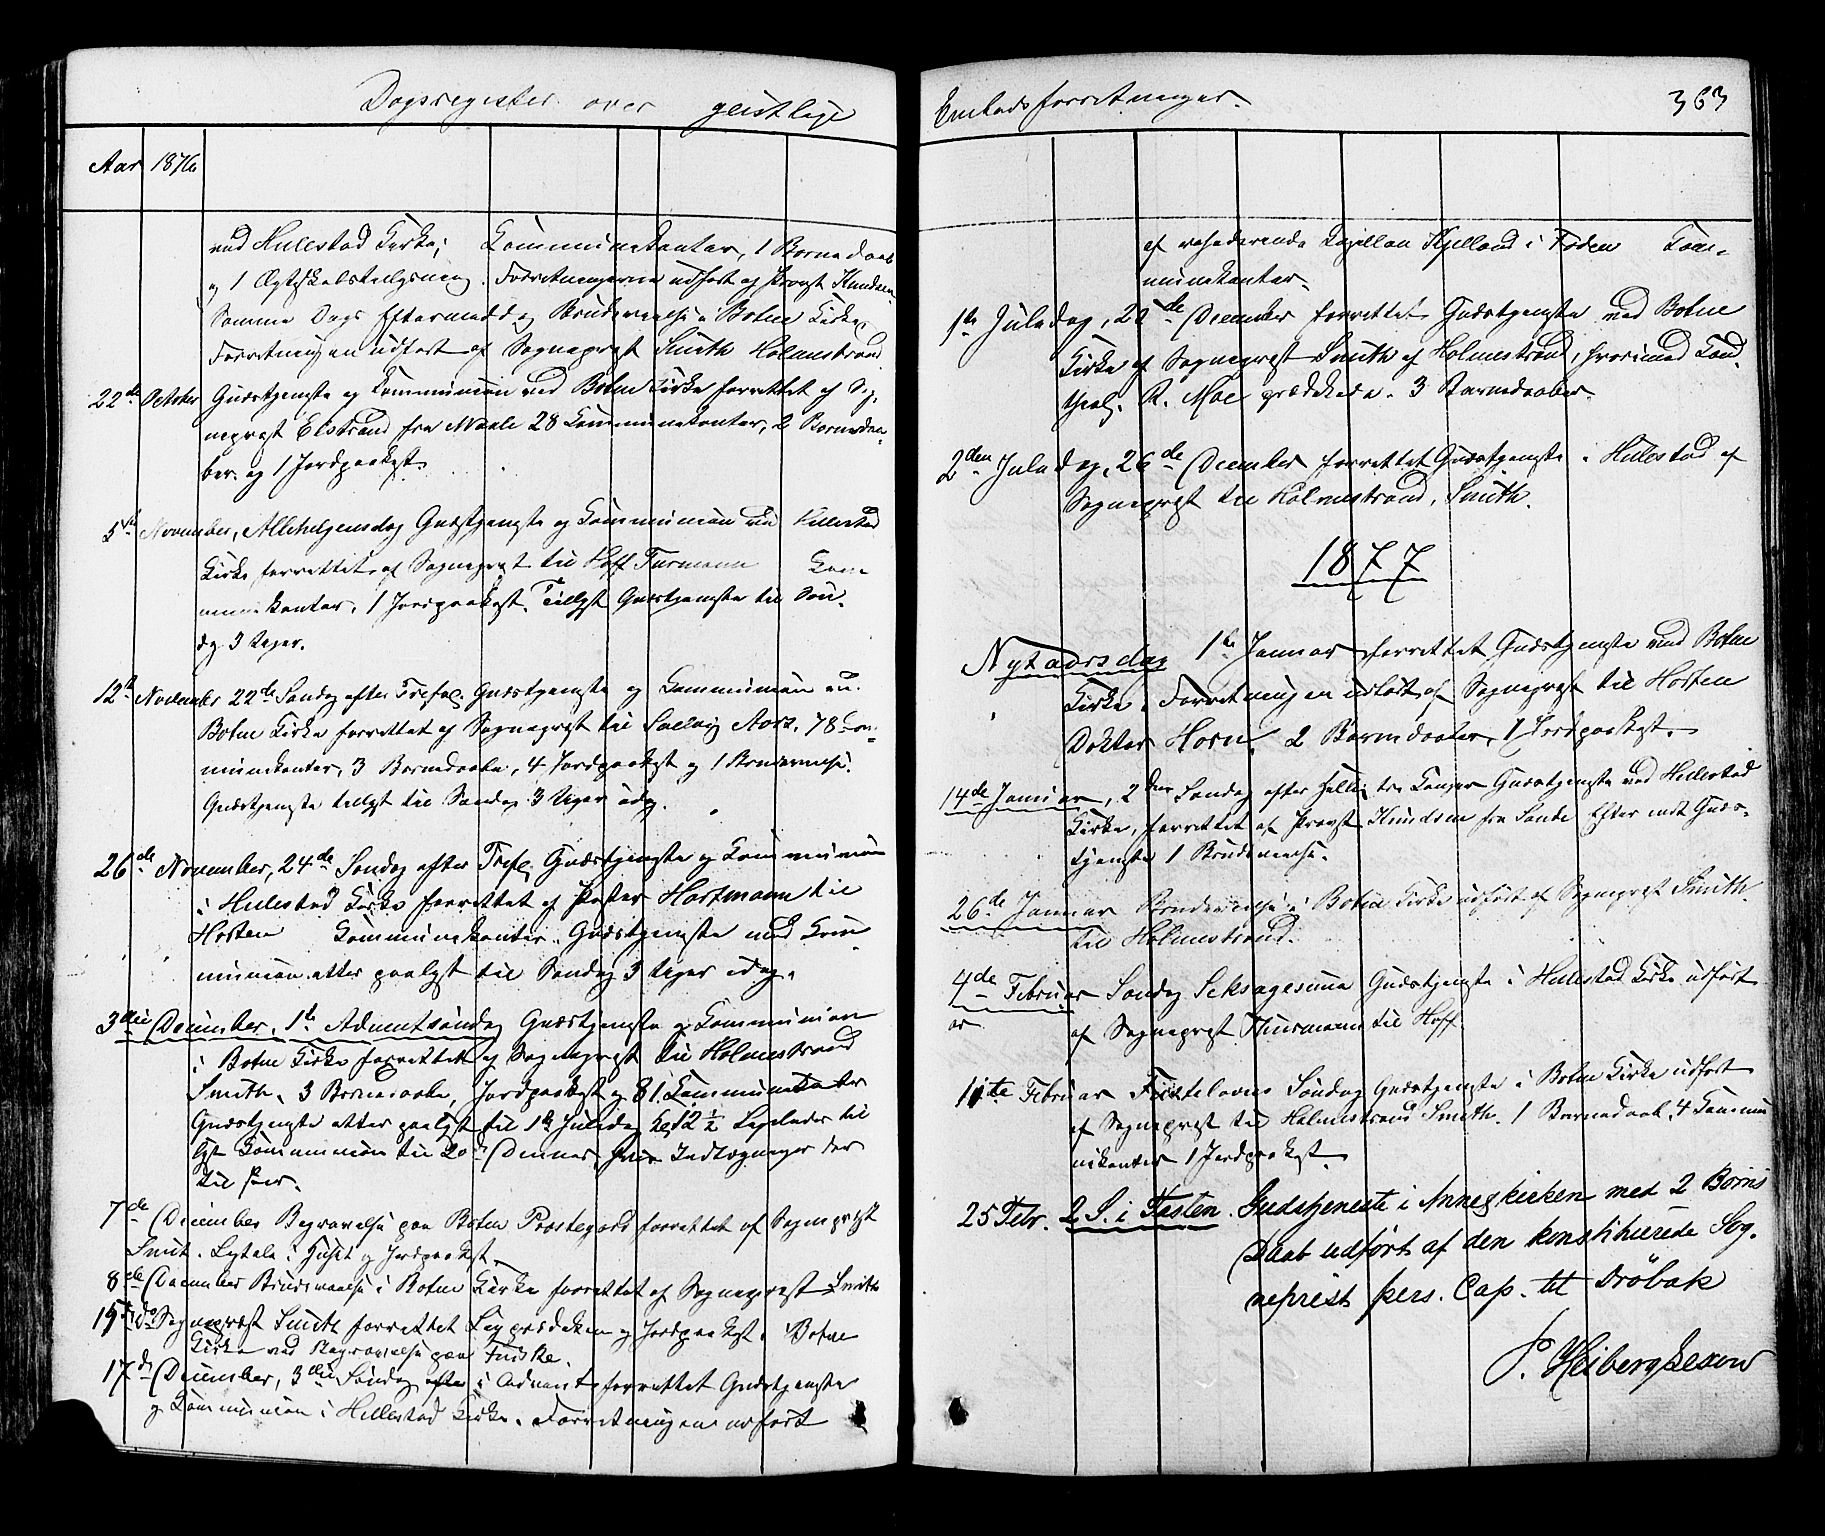 Dagsregister over geistlige
Aar 1876
ved Hillestad Kirke; Kommunikanter, 1 Barnedaab
og 1 Ægteskabstillysning. Forretningerne udført af Provst Knudsen.
Samme Dags Eftermiddag Brudevielse i Botne Kirke,
Forretningen udført af Sogneprest Smith Holmestrand
22de October Gudstjeneste og Kommunion ved Botne Kirke forrettet af Sog-
neprest Elstrand fra Maale 28 Kommunikanter, 2 Barnedaa-
ber og 1 Jordpaakast.
5te November, Allehelgensdag Gudstjeneste og Kommunion ved Hillestad
Kirke forrettet af Sogneprest til Hoff Turmann Kom
munikanter, 1 Jordpaakast. Tillyst Gudstjeneste til Søn-
dag 3 Uger.
12te November 22de Søndag efter Trefol. Gudstjeneste og Kommunion
Botne Kirke forrettet af Sogneprest til Aars. 78 Kom-
munikanter, 3 Barnedaabe, 4 Jordpaakast og 1 Brudevielse.
Gudstjeneste tillyst til Søndag 3 Uger idag.
26de November, 24de Søndag efter Tref. Gudstjeneste og Kommunion
i Hillestad Kirke forrettet af Pastor Hartmann til
Horten Kommunikanter. Gudstjeneste med Kom
munion atter paalyst til Søndag 3 Uger idag.
3die December, 1te Adventsøndag Gudstjeneste og Kommunion
i Botne Kirke forrettet af Sogneprest til Holmestrand
Smith, 3 Barnedaabe, Jordpaakast og 81 Kommunikanter
Gudstjeneste atter paalyst til 1te Juledag Kl 12½ til
lyst Kommunion til 20de
til
7de December Begravelse paa Botne Præstegaard forrettet af Sogneprest
Smit. Ligtale i Huset og Jordpaakast.
8de December Brudevielse i Botne Kirke forrettet af Sogneprest Smith
15de do Sogneprest Smith forrettet Ligprædiken og Jordpaakast i Botne
Kirke ved Begravelse paa
17de December, 3die Søndag i Advent forrettet Gudstjeneste
og Kommunion i Hillestad Kirke. Forretningen udført
Embedsforretninger. 363
af residerende Kapellan Kjelland i Kom-
munikanter.
1te Juledag, 25de December forrettet Gudstjeneste ved Botne
Kirke af Sogneprest Smith af Holmestrand, hvorimod Cand.
theol. R. Moe prædikede. 3 Barnedaaber.
2den Juledag, 26de December forrettet Gudstjeneste i Hillestad af
Sogneprest til Holmestrand, Smith.
1877
Nytaarsdag 1te Januar forrettet Gudstjeneste ved Botne
Kirke. Forretningen udført af Sogneprest til Horten
Doktor Horn. 2 Barnedaaber, 1 Jordpaakast.
14de Januar, 2den Søndag efter Hellig tre Konger Gudstjeneste ved Hillestad
Kirke, forrettet af Provst Knudsen fra Sande Efter endt Guds-
tjeneste 1 Brudevielse.
26de Januar Brudevielse i Botne Kirke udført af Sogneprest Smith
til Holmestrand.
4de Februar Søndag Seksagesima Gudstjeneste i Hillestad Kirke udført
af Sogneprest Thurmann til Hoff
11te Februar Fastelavns Søndag Gudstjeneste i Botne Kirke udført
af Sogneprest til Holmestrand Smith. 1 Barnedaab, 4 Kommu
nikanter 1 Jordpaakast.
25 Febr. 2 S. i Fasten. Gudstjeneste i Annexkirken med 2 Børns
Daab udført af den konstituerede Sog.
neprest pers. Cap. til Drøbak
P. Heiberg